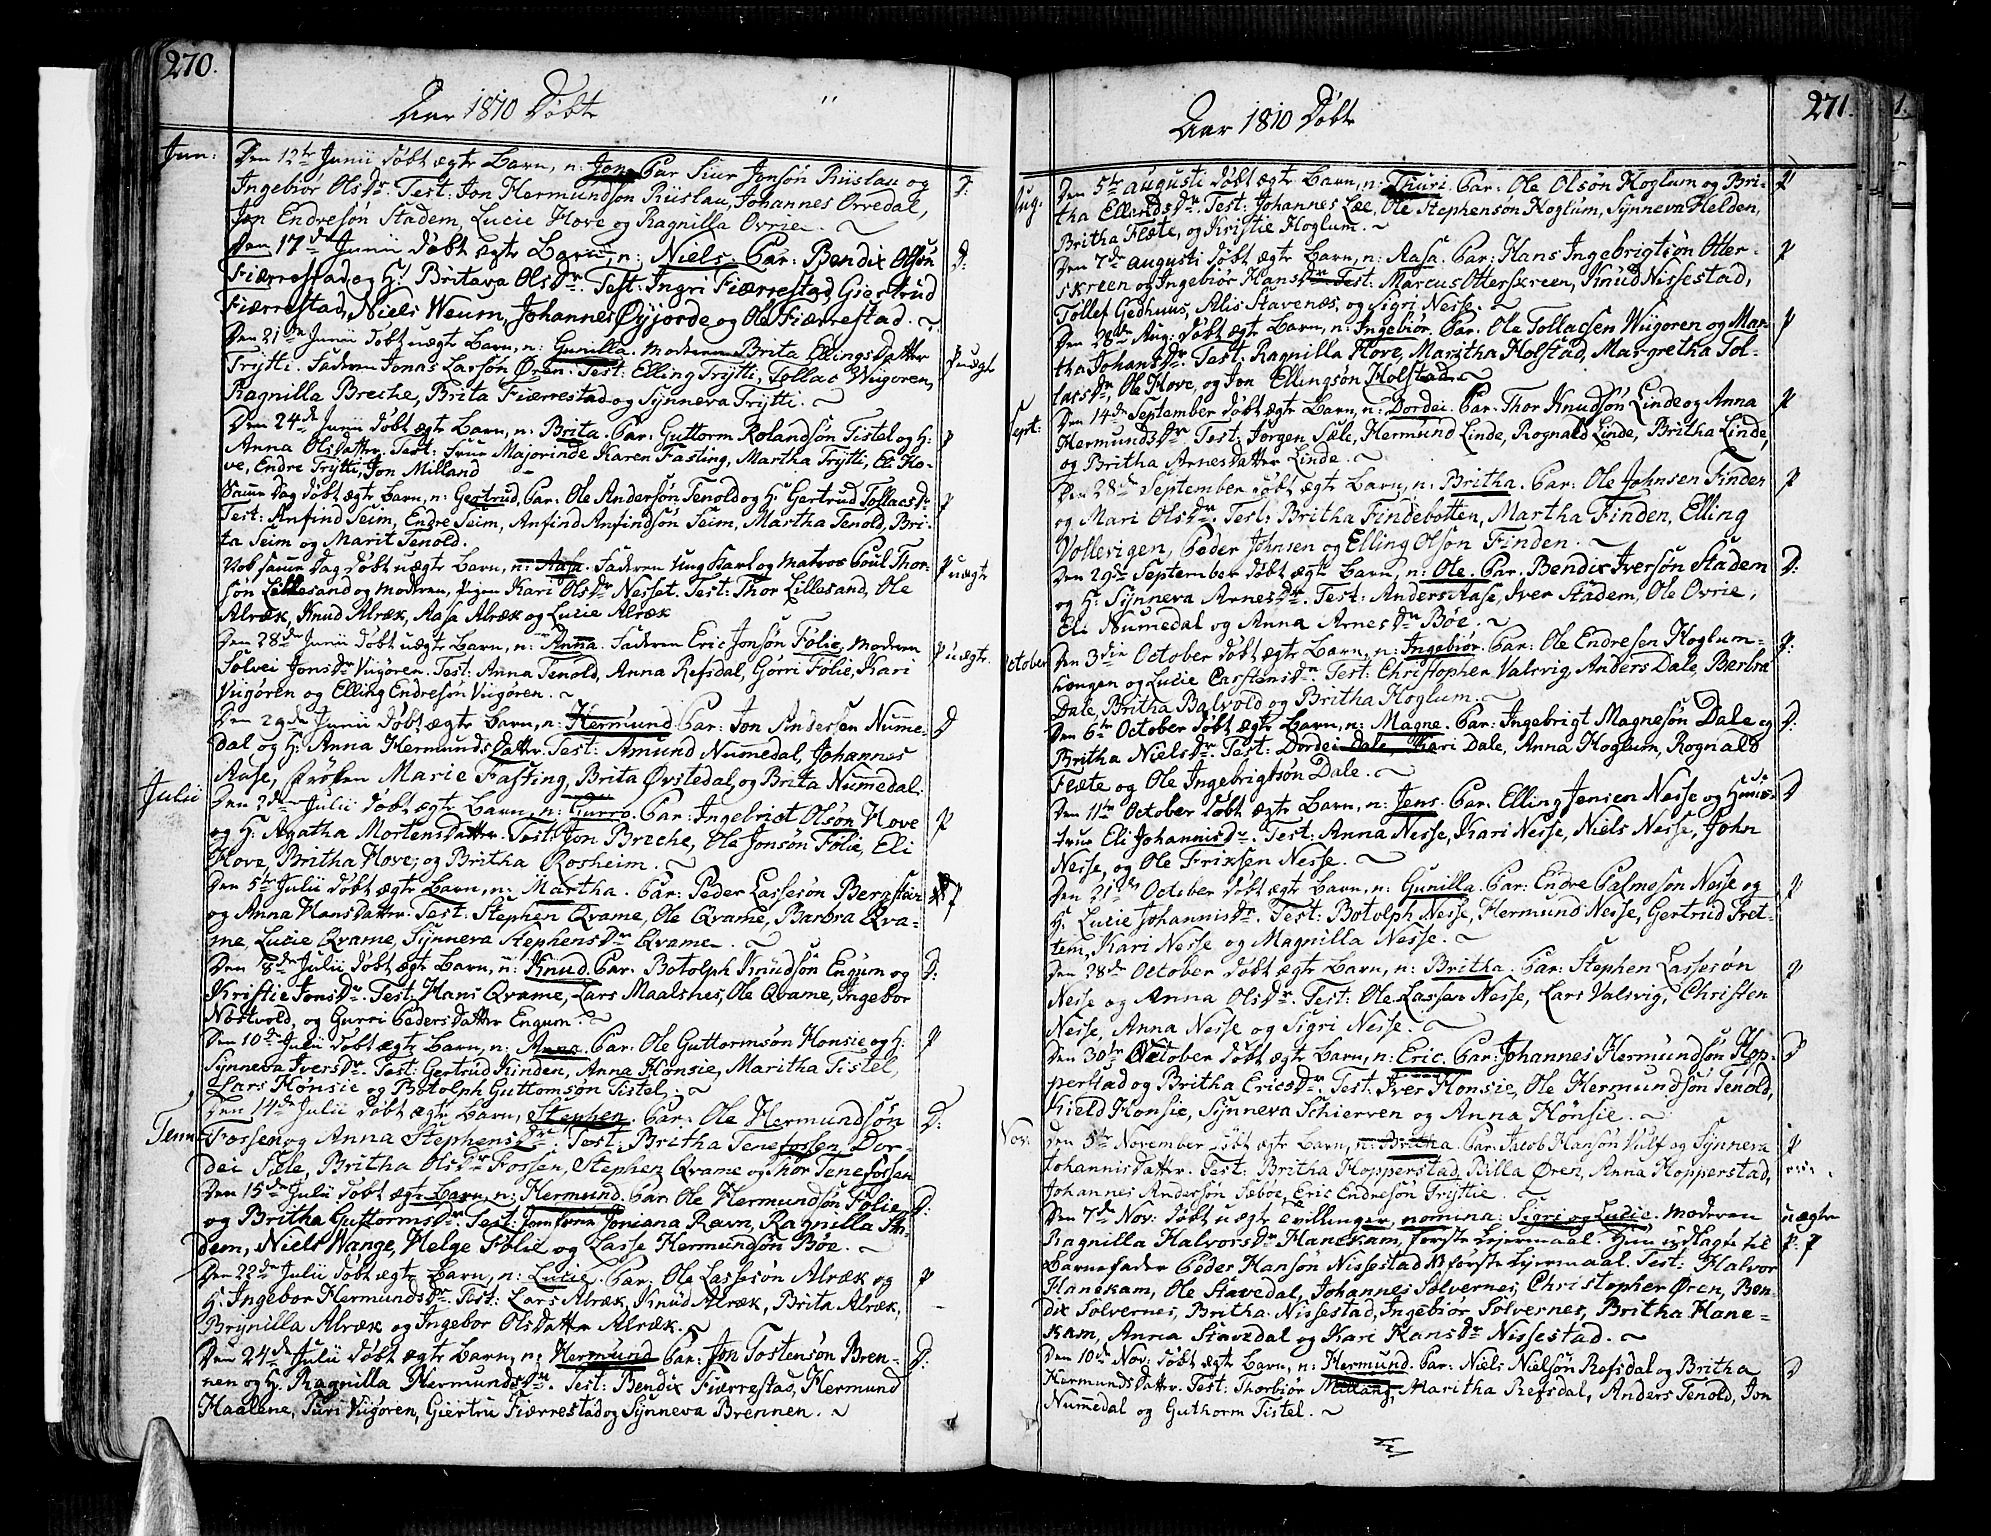 270.
Aar 1810 Døbte
Jun:
Den 12te Junii døbt ægte Barn, n: Jon. Par. Siur Jonsøn Riislau og
Ingebiør OlsDr. Test: Jon Hermundsøn Riislau, Johannes Orvedal,
Jon Endresøn Stadem, Lucie Hove og Ragnilla Ovrie. D:
Den 17de Junii døbt ægte Barn, n: Niels. Par: Bendix Olsøn
Fiærrestad og H: Britava OlsDr. Test: Ingri Fiærrestad, Giertrud D:
Fiærrestad, Niels Weum, Johannes Øyjorde og Ole Fiærrestad.
Den 21de Junii døbt uægte Barn, n: Gunilla. Moderen Brita EllingsDatter
Trÿtti. Faderen Jonas Larsøn Øren. Test: Elling Trÿtti, Tollac Wiigoren, P uægt
Ragnilla Breche, Brita Fiærrestad og Sÿnneva Trÿtti.
Den 24de Junii døbt ægte Barn, n: Brita. Par: Guttorm Rolandsøn Tistel og H:
Anna OlsDatter. Test: Frue Majorinde Karen Fasting, Martha Trÿtti, Eli Ho- P
ve, Endre Trÿtti, Jon Milland
Samme Dag døbt ægte Barn, n: Gertrud. Par: Ole Andersøn Tenold og H: Gertrud TollacsDr
Test: Anfind Seim, Endre Seim, Anfind Anfindsøn Seim, Martha Tenold, Bri- P
ta Seim og Marit Tenold.
Nob samme Dag døbt uægte Barn, n: Aasa. Faderen Ung Karl og Matros Poul Thor-
søn Lillesand og Moderen, Pigen Kari OlsDr Nesset. Test: Thor Lillesand, Ole P uægte
Alræk, Knud Alræk, Aasa Alræk og Lucie Alræk
Den 28de Junii døbt uægte Barn, n: Anna. Faderen Eric Jonsøn Følie, Moderen
Sølvei JonsDr Viigøren. Test: Anna Tenold, Anna Refsdal, Gørri Følie, Kari P uægte
Viigøren og Elling Endresøn Viigøren.
Den 29de Junii døbt ægte Barn, n: Hermund. Par: Jon Andersen Numme- D
dal og H: Anna HermundsDatter. Test: Amund Nummedal, Johannes
Aase, Frøken Marie Fasting, Brita Øvstedal, og Brita Nummedal.
Julii
Den 2de Julii døbt ægte Barn, n: Gurro. Par: Ingebrict Olsøn Hove
og H: Agatha MortensDatter. Test: Jon Breche, Ole Jonsøn Følie, Eli P
Hove, Britha Hove, og Britha Rosheim.
Den 5te Julii døbt ægte Barn, n: Martha. Par: Peder Lassesøn
og Anna HansDatter. Test: Stephen Qvame, Ole Qvame, Barbra Qva- P
me, Lucie Qvame, Sÿnneva StephensDr Qvame.
Den 8de Julii døbt ægte Barn, n: Knud. Par: Botolph Knudsøn Engum og D:
Kristie JonsDr. Test: Hans Qvame, Lars Maalsnes, Ole Qvame, Ingebor
Nostvold, og Gurri PedersDatter Engum.
Den 10de Julii døbt ægte Barn, n: Anna. Par: Ole Guttormsøn Honsie og H: P
Sÿnneva IversDr. Test: Gertrud Kinden, Anna Hønsie, Maritha Tistel,
Lars Hønsie og Botolph Guttormsøn Tistel.
Den 14de Julii døbt ægte Barn, Stephen. Par: Ole Hermundsøn D:
Tenne- Fossen og Anna StephensDr. Test: Britha Tenefossen, Dor-
dei Sæle, Britha OlsDr Fossen, Stephen Qvame og Thor Tenefossen
Den 15de Julii døbt ægte Barn, n: Hermund. Par: Ole Hermundsøn Følie D:
og Britha GuttormsDr. Test: Jomfrue Joniana Ravn, Ragnilla Sta-
dem, Niels Wange, Helge Følie og Lasse Hermundsøn Bøe.
Den 22de Julii døbt ægte Barn, n: Lucie. Par: Ole Lassesøn Alræk og P
H: Ingebor HermundsDr. Test: Lars Alræk, Knud Alræk, Brita Alræk,
Brÿnilla Alræk og Ingebor OlsDatter Alræk.
Den 24de Julii døbt ægte Barn, n: Hermund. Par: Jon Tostensøn Bren- D:
nen og H: Ragnilla HermundsDr. Test: Bendix Fiærrestad, Hermund
Haalene, Turi Viigøren, Giertru Fiærrestad og Sÿnneva Brennen.
271.
Aar 1810 Døbte
Aug:
Den 5te Augusti døbt ægte Barn, n: Thuri. Par: Ole Olsøn Hoglum og Bri-
tha EllendsDr. Test: Johannes Læe, Ole Stephensøn Hoglum, Sÿnneva Helden,
Britha Flæte, og Kristie Hoglum.
Den 7de Augusti døbt ægte Barn, n: Aasa. Par: Hans Ingebrigtsøn Otter- P
skreen og Ingebiør HansDr Test: Marcus Otterskreen, Knud Nissestad,
Tollef Gedhuus, Alis Stavenæs, og Sigri Nesse.
Den 28de Aug: døbt ægte Barn, n: Ingebiør. Par: Ole Tollacsen Wiigoren og Mar- P
tha JohansDr. Test: Ragnilla Hove, Maritha Holstad, Margretha Tol-
lacsDr, Ole Hove, og Jon Ellingsøn Holstad.
Sept:
Den 14de September døbt ægte Barn, n: Dordei. Par: Thor Knudsøn Linde og Anna P
HermundsDr. Test: Jørgen Sæle, Hermund Linde, Rognald Linde, Britha Linde,
og Britha ArnesDatter Linde.
Den 28de September døbt ægte Barn, n: Britha. Par: Ole Johnsen Finden P
og Mari OlsDr. Test: Britha Findebotten, Martha Finden, Elling
Vollevigen, Peder Johnsen og Elling Olsøn Finden.
Den 29de September døbt ægte Barn, n: Ole. Par: Bendix Iversøn Stadem D:
og H: Sÿnneva ArnesDr. Test: Anders Aase, Iver Stadem, Ole Ovrie,
Eli Numedal og Anna ArnesDr Bøe.
October
Den 3die October døbt ægte Barn, n: Ingebiør. Par: Ole Endresen Hoglum-
hougen og Lucie CarstensDr. Test: Christopher Valsvig, Anders Dale, Barbra
Dale, Britha Balvold og Britha Hoglum.
Den 6te October døbt ægte Barn, n: Magne. Par: Ingebrigt Magnesøn Dale og D:
Britha NielsDr. Test: Dordei Dale, Kari Dale, Anna Hoglum, Rognald
Flæte og Ole Ingebrigtsøn Dale.
Den 11te October døbt ægte Barn, n: Jens. Par: Elling Jensen Nesse og Huus- D
true Eli JohannisDr. Test: Anna Nesse, Kari Nesse, Niels Nesse, John
Nesse, og Ole Erixsen Nesse.
Den 21de October døbt ægte Barn, n: Gunilla. Par: Endre Palmesøn Nesse og P
H: Lucie JohannisDr. Test: Botolph Nesse, Hermund Nesse, Gertrud Fret-
tem, Kari Nesse og Magnilla Nesse.
Den 28de October døbt ægte Barn, n: Britha. Par: Stephen Lassesøn P
Nesse og Anna OlsDr. Test: Ole Lassen Nesse, Lars Valsvig, Christen
Nesse, Anna Nesse og Sigri Nesse.
Den 30te October døbt ægte Barn, n: Eric. Par: Johannes Hermundsøn Hop- D
perstad og Britha EricsDr. Test: Iver Honsie, Ole Hermundsøn Tenold,
Kield Honsie, Sÿnneva Schierven og Anna Hønsie.
Nov.
Den 5te November døbt ægte Barn, n: Britha. Par: Jacob Hansøn Vulf og Sÿnneva P
JohannisDatter. Test: Britha Hopperstad, Rilla Øren, Anna Hopperstad,
Johannes Andersøn Sæbøe, Eric Endresøn Trÿttie.
Den 7de Nov: døbt uægte Tvillinger, nomina: Sigri og Lucie. Moderen uægte
Ragnilla HalvorsDr Hanekam, første Leiermaal. Hun udlagte til P: P
Barnefader Peder Hansøn Nissestad første Lejermaal. Test: Halvor
Hanekam, Ole Stavedal, Johannes Sølvernes, Christopher Øren, Ben-
dix Sølvernes, Britha Nissestad, Ingebiør Sølvernes, Britha Hane-
kam, Anna Stavedal og Kari HansDr Nissestad.
Den 10de Nov: døbt ægte Barn, n: Hermund. Par: Niels Nielsøn Refsdal og Britha D
HermundsDatter. Test: Thorbiør Millang, Maritha Refsdal, Anders Tenold, Jon
Nummedal og Guthorm Tistel.